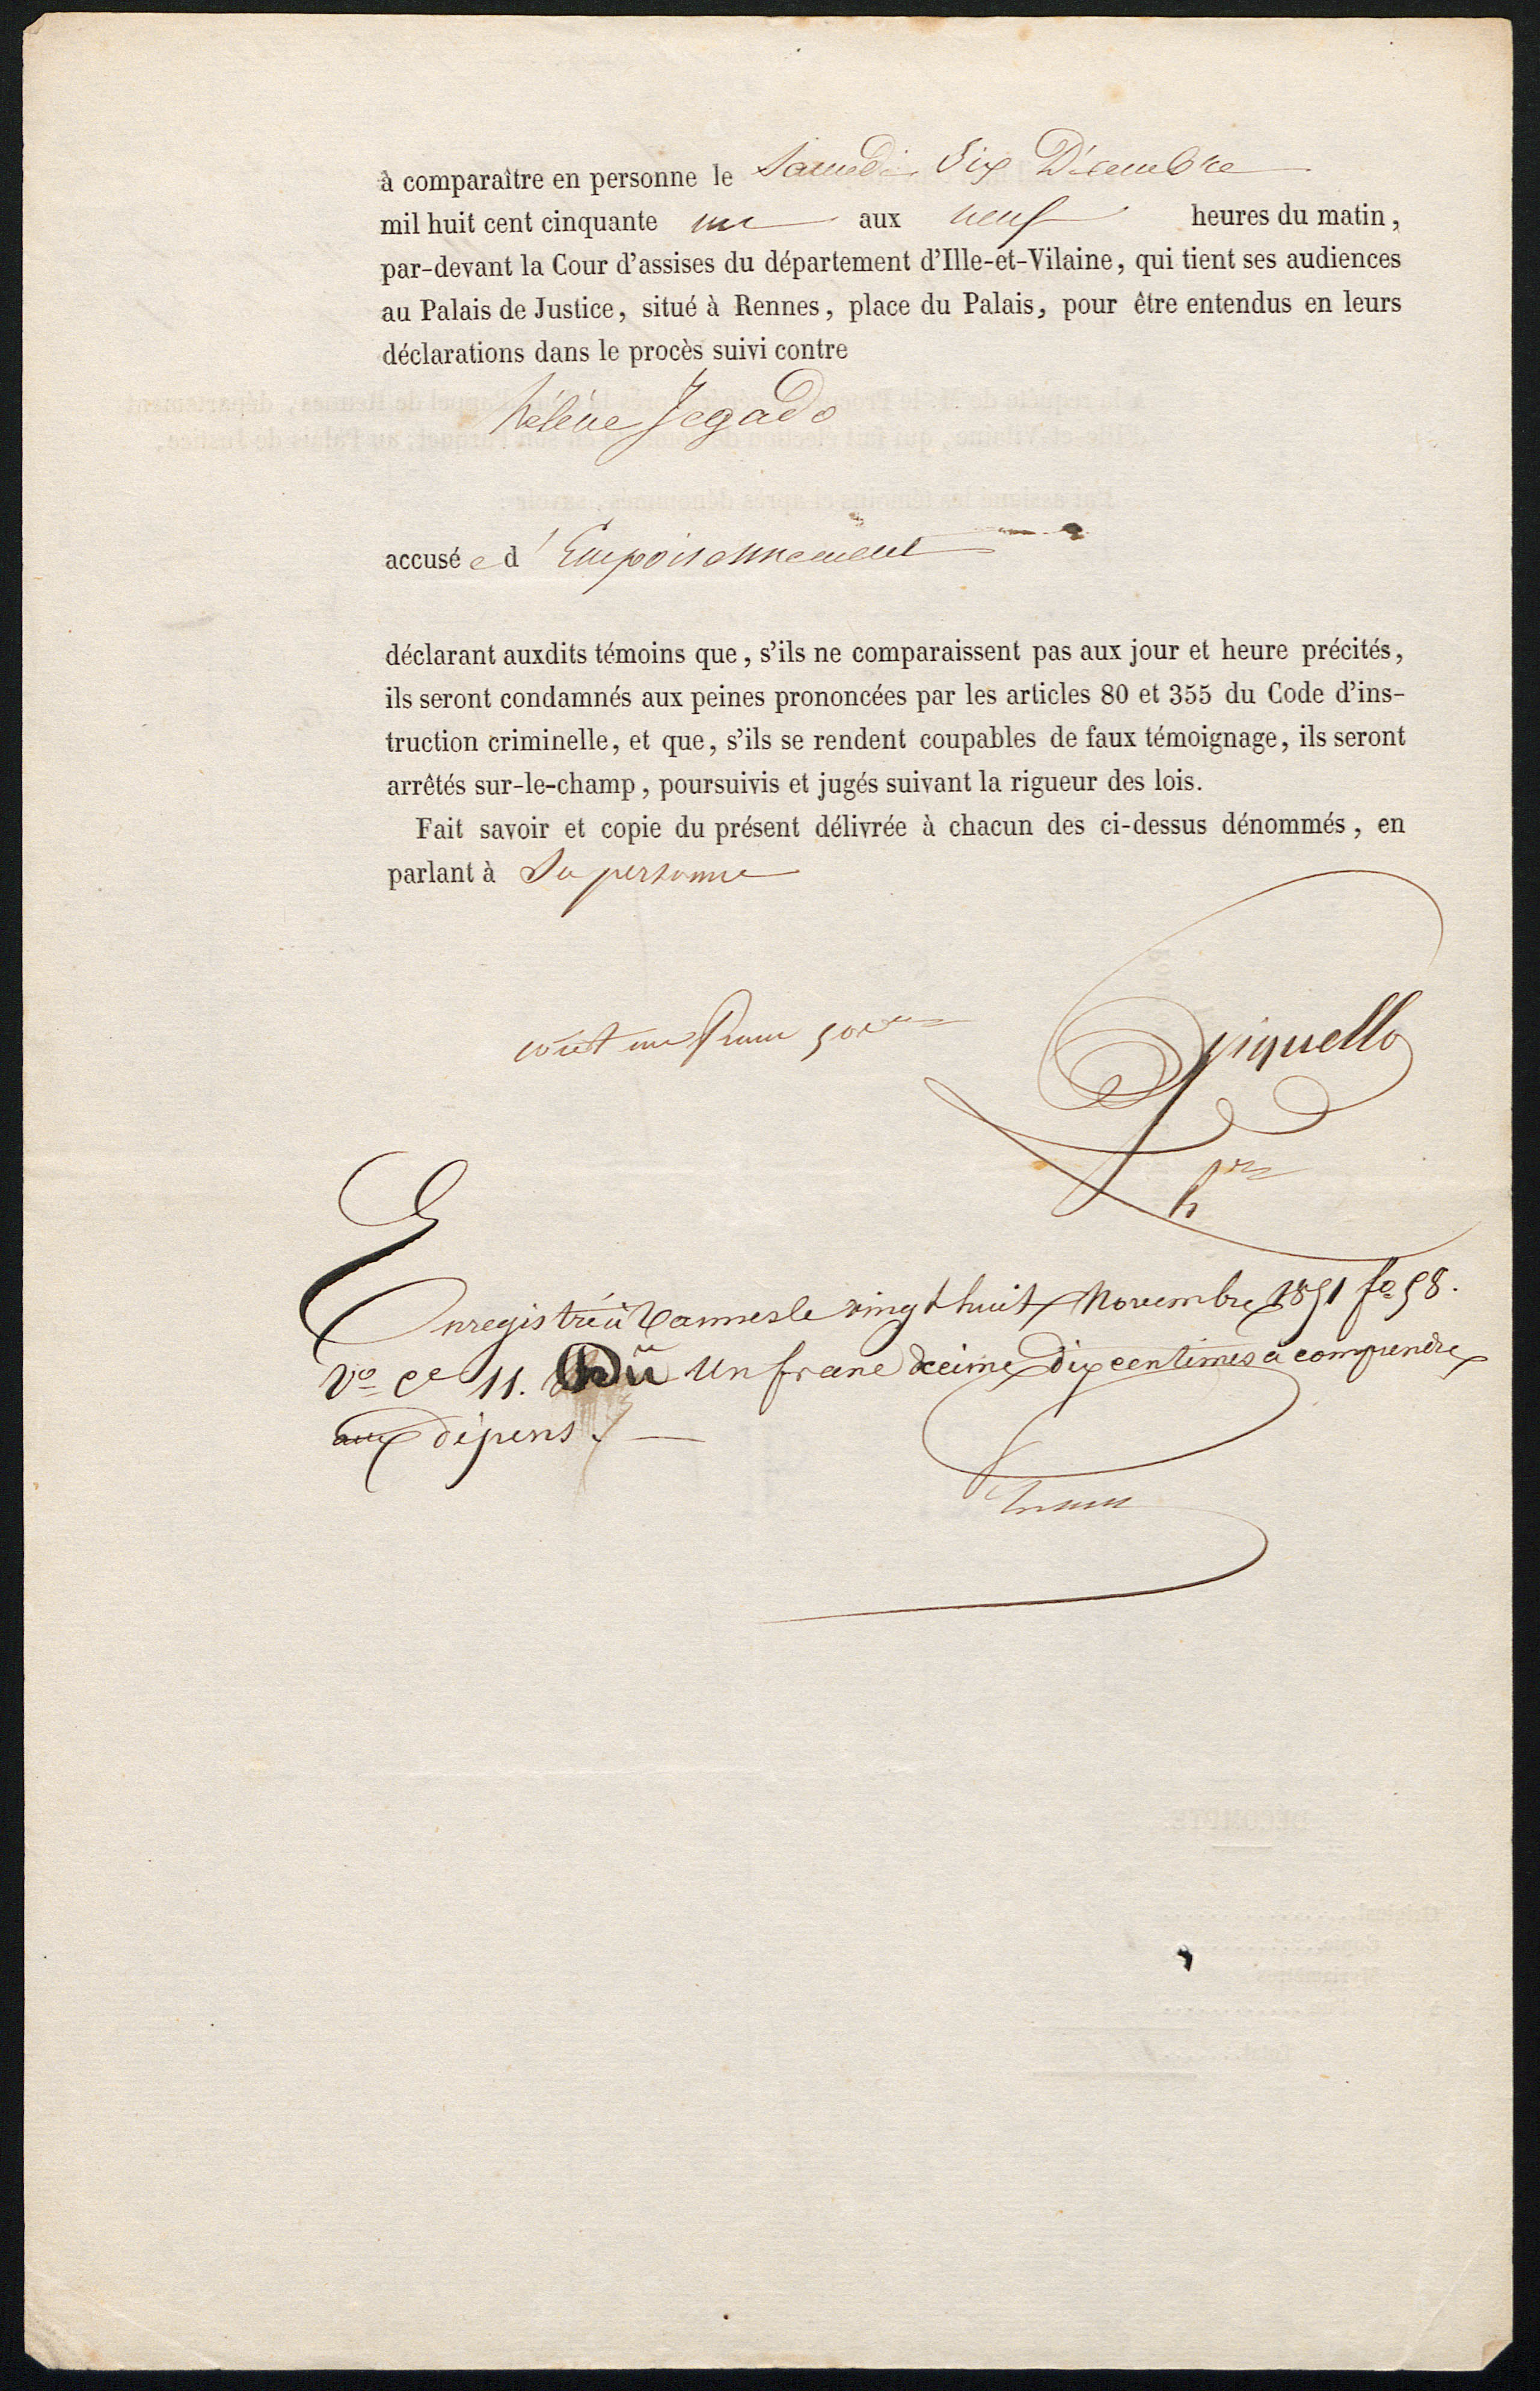 à comparaître en personne le Samedi Six Décembre
mil huit cent cinquante un aux neuf heures du matin,
par-devant la Cour d'assises du département d'Ille-et-Vilaine, qui tient ses audiences
au Palais de Justice, situé à Rennes, place du Palais, pour être entendus en leurs
déclarations dans le procès suivi contre
hélène Jegado
accusé e d'Empoisonnement
déclarant auxdits témoins que, s'ils ne comparaissent pas aux jour et heure précités,
ils seront condamnés aux peines prononcées par les articles 80 et 355 du Code d'ins-
truction criminelle, et que, s'ils se rendent coupables de faux témoignage, ils seront
arrêtés sur-le-champ, poursuivis et jugés suivant la rigueur des lois.
Fait savoir et copie du présent délivrée à chacun des ci-dessus dénommés, en
parlant à Sa personne
cout un franc
Enregistré à Vannes le vingt huit Novembre 1851 fo 58.
Vo Ce 11. Dû Un franc décime Dix centimes à comprendre
aux dépens.